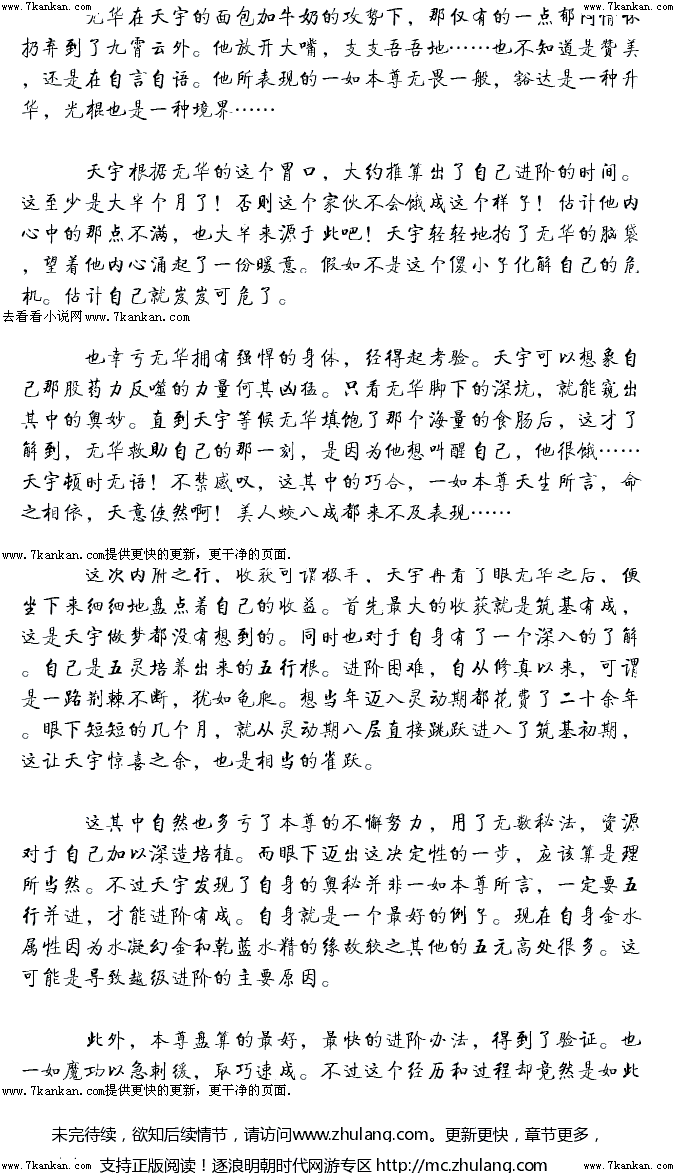 www.7kankan.com www.7kankan.com
无华在天宇的面包加牛奶的攻势下，那仅有的一点郁闷情怀
扔弃到了九霄云外。他放开大嘴，支支吾吾地……也不知道是赞美
，还是在自言自语。他所表现的一如本尊无畏一般，豁达是一种升
华，光棍也是一种境界……
天宇根据无华的这个胃口，大约推算出了自己进阶的时间。
这至少是大半个月了！否则这个家伙不会饿成这个样子！估计他内
心中的那点不满，也大半来源于此吧！天宇轻轻地拍了无华的脑袋
，望着他内心涌起了一份暖意。假如不是这个傻小子化解自己的危
机。估计自己就岌岌可危了。
去看看小说网www.7kankan.com
也幸亏无华拥有强悍的身体，经得起考验。天宇可以想象自
己那股药力反噬的力量何其凶猛。只看无华脚下的深坑，就能窥出
其中的奥妙。直到天宇等候无华填饱了那个海量的食肠后，这才了
解到，无华救助自己的那一刻，是因为他想叫醒自己，他很饿……
天宇顿时无语！不禁感叹，这其中的巧合，一如本尊天生所言，命
之相依，天意使然啊！美人蛟八成都来不及表现……
www.7kankan.com提供更快的更新，更干净的页面.
这次内附之行，收获可谓极丰，天宇再看了眼无华之后，便
坐下来细细地盘点着自己的收益。首先最大的收获就是筑基有成，
这是天宇做梦都没有想到的。同时也对于自身有了一个深入的了解
。自己是五灵培养出来的五行根。进阶困难，自从修真以来，可谓
是一路荆棘不断，犹如龟爬。想当年迈入灵动期都花费了二十余年
。眼下短短的几个月，就从灵动期八层直接跳跃进入了筑基初期，
这让天宇惊喜之余，也是相当的雀跃。
这其中自然也多亏了本尊的不懈努力，用了无数秘法，资源
对于自己加以深造培植。而眼下迈出这决定性的一步，应该算是理
所当然。不过天宇发现了自身的奥秘并非一如本尊所言，一定要五
行并进，才能进阶有成。自身就是一个最好的例子。现在自身金水
属性因为水凝幻金和乾蓝水精的缘故较之其他的五元高处很多。这
可能是导致越级进阶的主要原因。
此外，本尊盘算的最好，最快的进阶办法，得到了验证。也
一如魔功以急刺缓，取巧速成。不过这个经历和过程却竟然是如此
www.7kankan.com提供更快的更新，更干净的页面.
未完待续，欲知后续情节，请访问www.zhulang.com。更新更快，章节更多，
www.7kankan.com 支持正版阅读！逐浪明朝时代网游专区 http://mc.zhulang.com www.7kankan.com